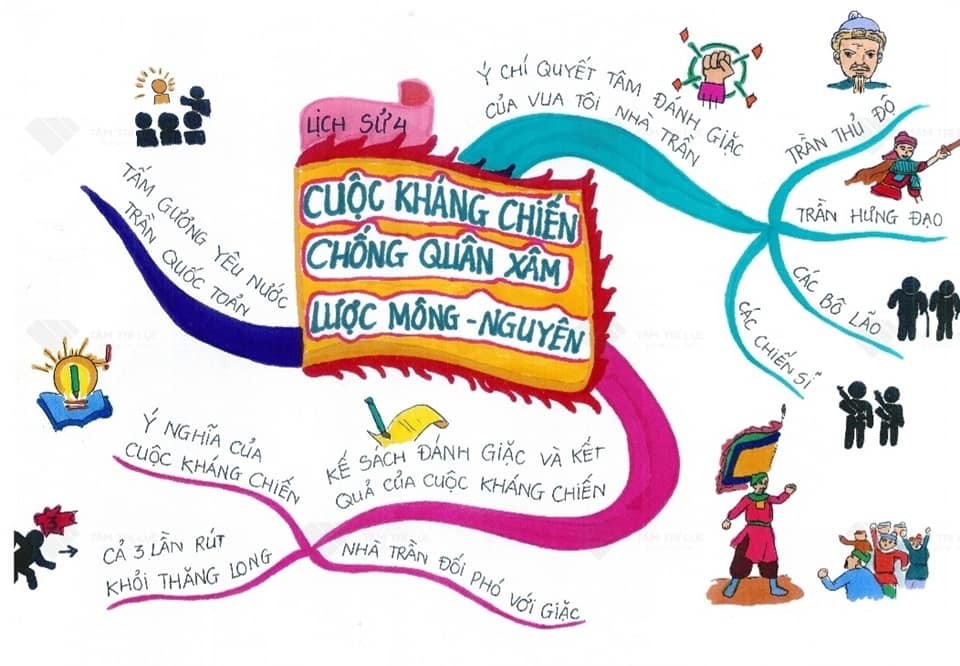 LỊCH SỬ 4
CUỘC KHÁNG CHIẾN
CHỐNG QUÂN XÂM
LƯỢC MÔNG - NGUYÊN
Ý CHÍ QUYẾT TÂM ĐÁNH GIẶC
CỦA VUA TÔI NHÀ TRẦN
TRẦN THỦ ĐỘ
TRẦN HƯNG ĐẠO
CÁC BÔ LÃO
CÁC CHIẾN SĨ
TẤM GƯƠNG YÊU NƯỚC
TRẦN QUỐC TOẢN
KẾ SÁCH ĐÁNH GIẶC VÀ KẾT
QUẢ CỦA CUỘC KHÁNG CHIẾN
Ý NGHĨA CỦA
CUỘC KHÁNG CHIẾN
3
CẢ 3 LẦN RÚT
KHỎI THĂNG LONG
NHÀ TRẦN ĐỐI PHÓ VỚI GIẶC
TÂM TRÍ LỰC